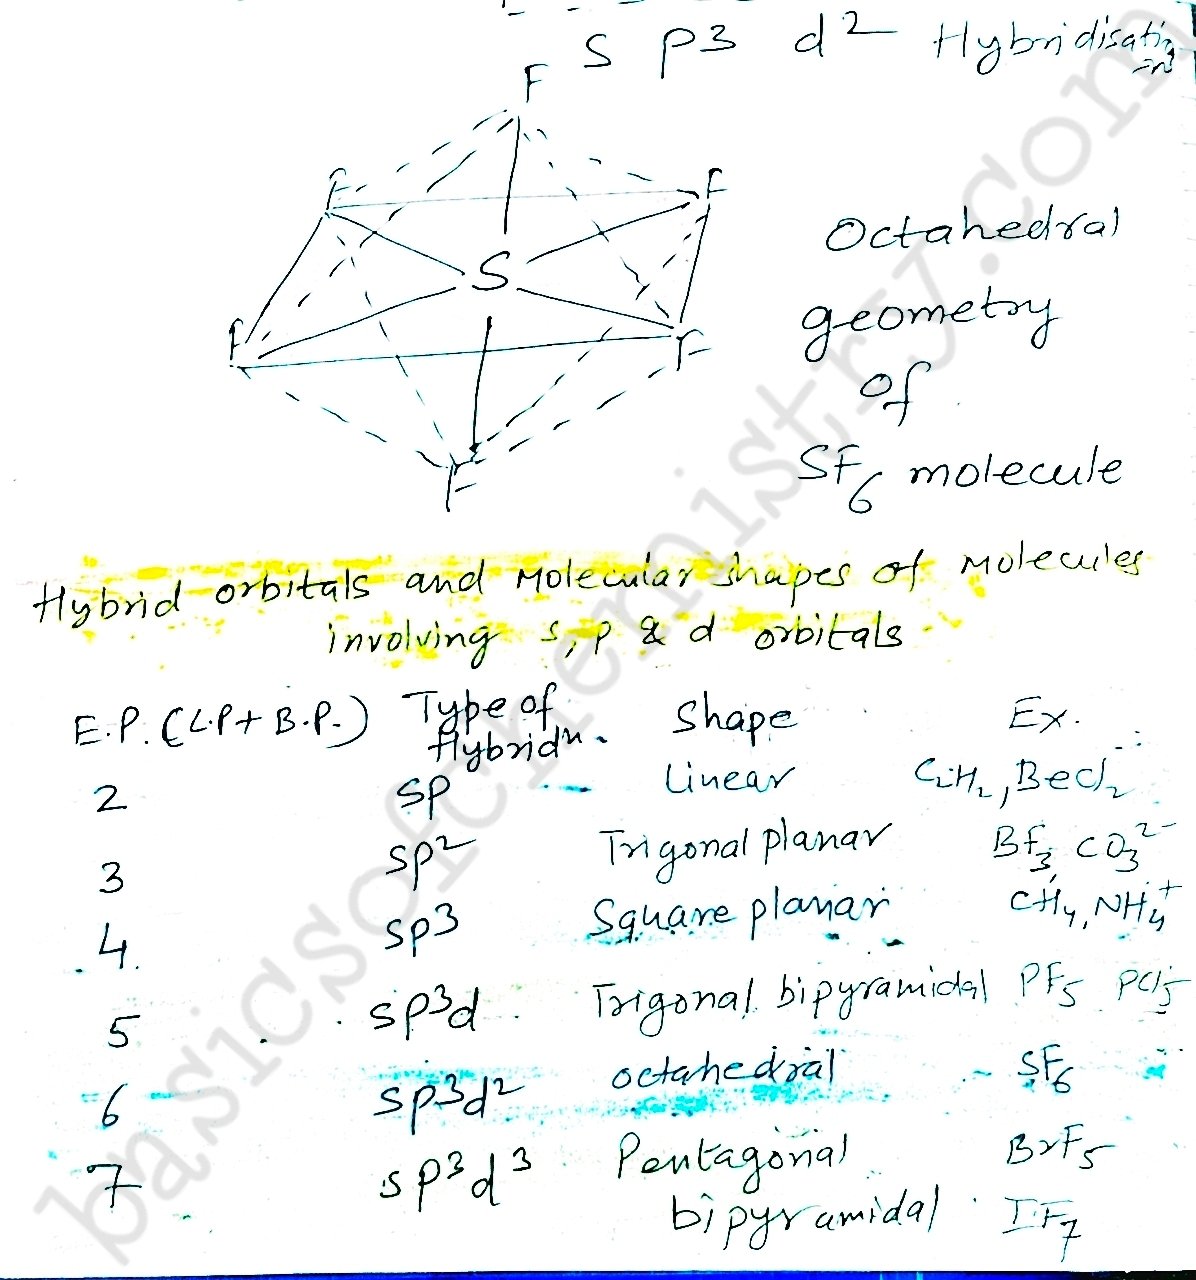 S P3 d2 Hybridisation
F
F F
Octahedral
S
geometry
F F
of
SF6 molecule
F
Hybrid orbitals and Molecular shapes of Molecules
involving s, p & d orbitals
E.P. (L.P+ B.P.) Type of Hybridn. Shape Ex.
2 sp Linear C2H2, BeCl2
3 sp2 Trigonal planar BF3, CO3 2-
4 sp3 Square planar CH4, NH4+
5 sp3d Trigonal bipyramidal PF5 PCl5
6 sp3d2 octahedral SF6
7 sp3d3 Pentagonal BrF5
bipyramidal IF7
basicsofchemistry.com